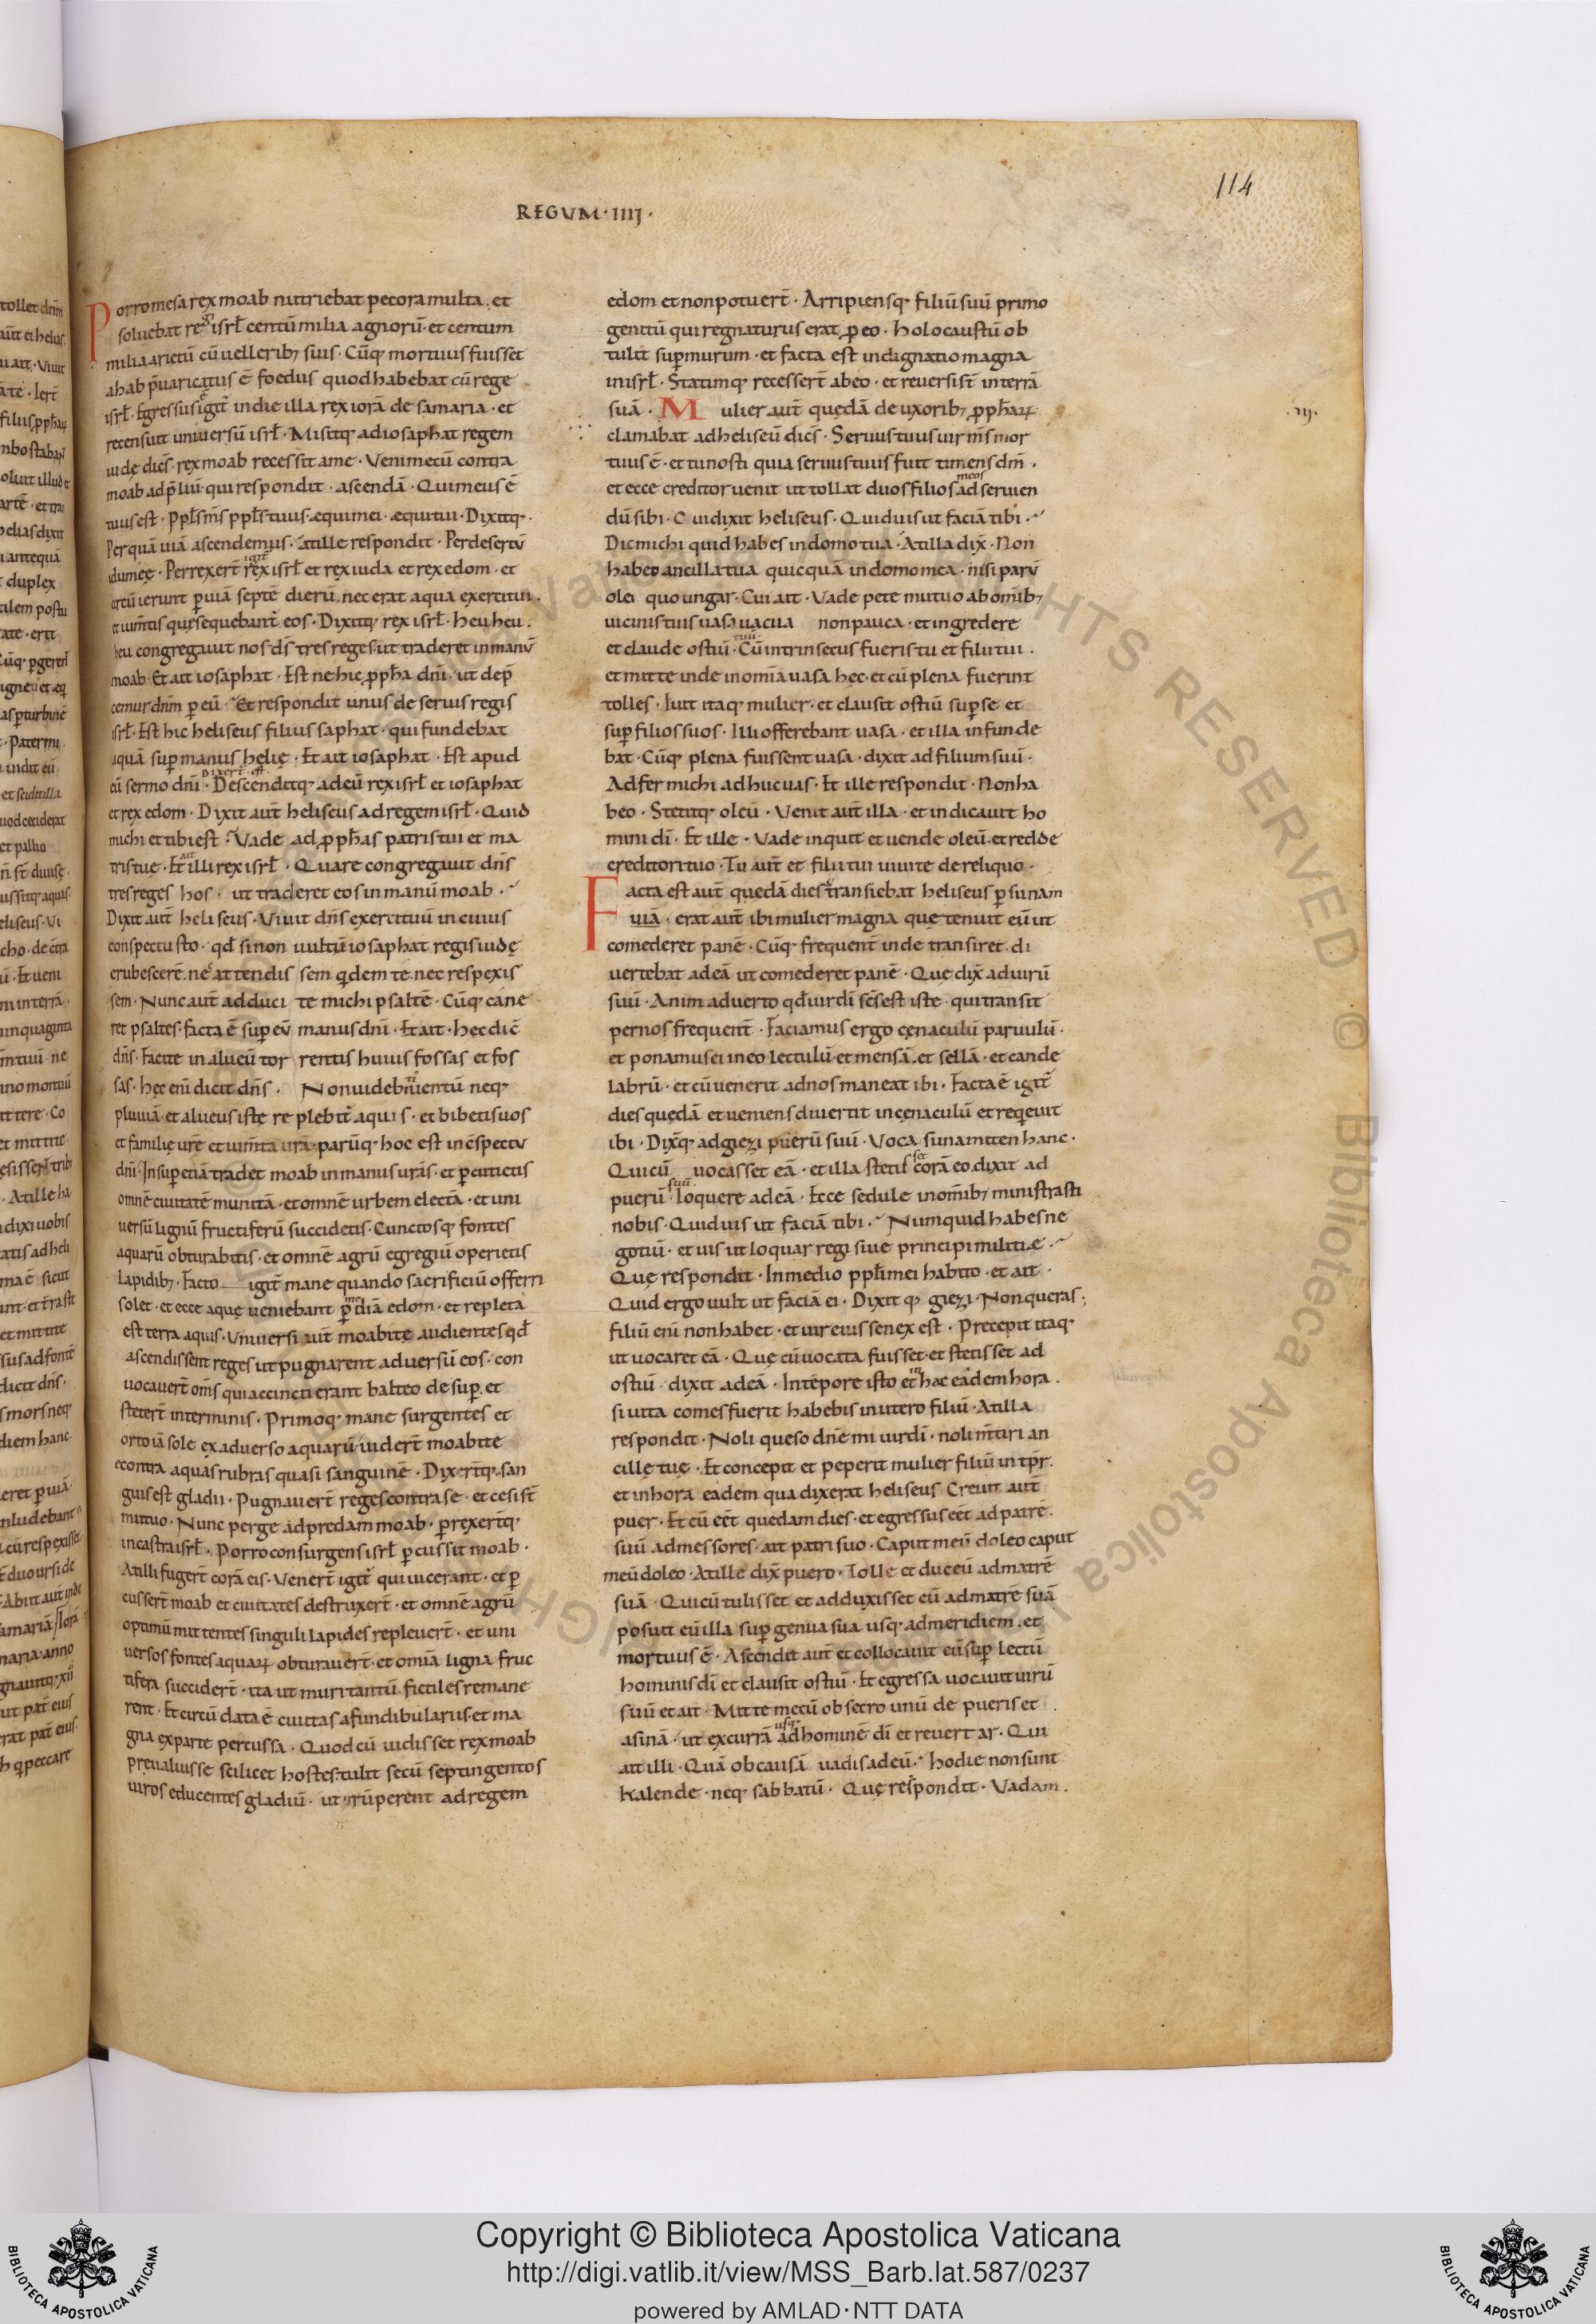 114
REGVM · IIIJ ·
Porro mesa rex moab nutriebat pecora multa . et
soluebat regi isrl̄ centū milia agnorū · et centum
milia arietū cū uelleribꝫ suis · Cūq; mortuus fuisset
ahab p̄uaricatus ē foedus quod habebat cū rege
isrl̄ · Egressus ē igit̄ in die illa rex iorā de samaria · et
recensuit uniuersū isrl̄ · Misitq; ad iosaphat regem
iudę dicēs · rex moab recessit a me · Veni mecū contra
moab ad p̄liū · qui respondit · ascendā · Qui meus ē
tuus est · Ppl̄s m̄s ppl̄s tuus · æqui mei · æqui tui · Dixitq; ·
Per quā uiā ascendemus · at ille respondit · Per desertū
idumeę · Perrexer̄t igit̄ rex isrl̄ et rex iuda et rex edom · et
circūierunt p̱ uiā septē dierū . nec erat aqua exercitui .
et ium̄tis quę sequebant̄ eos · Dixitq; rex isrl̄ · heu heu .
heu congregauit nos d̄s tres reges · ut traderet in manū
moab · Et ait iosaphat · Est ne hic p̱ph̄a dn̄i · ut dep̄
cemur dn̄m p̱ eū · Et respondit unus de seruis regis
isrl̄ · Est hic heliseus filius saphat · qui fundebat
aquā sup̱ manus helię · Et ait iosaphat · Est apud
eū sermo dn̄i · Descenditq; ad eū rex isrl̄ et iosaphat
et rex edom · Dixit aut̄ heliseus ad regem isrl̄ · Quid
michi et tibi est · Vade ad p̱ph̄as patris tui et ma
tris tuę · Et ait illi rex isrl̄ · Quare congregauit dn̄s
tres reges hos · ut traderet eos in manū moab ·
Dixit aut̄ heliseus · Viuit dn̄s exercituū in cuius
conspectu sto · qd̄ si non uultū iosaphat regis iudę
erubescerē . nec attendissem q̇dem te . nec respexis
sem · Nunc aut̄ adducite michi psaltē · Cūq; cane
ret psaltes · facta ē sup̱ eū manus dn̄i · Et ait · hec dic̄
dn̄s · Facite in alueū torrentis huius fossas et fos
sas · hęc eni dicit dn̄s · Non uidebitis uentū neq;
pluuiā · et alueus iste replebit̄ aquis · et bibetis uos
et familię ur̄ę et ium̄ta ur̄a · parūq; hoc est in cōspectu
dn̄i · Insup̱ etiā tradet moab in manus ur̄as · et p̱cutietis
omnē ciuitatē munitā · et omnē urbem electā · et uni
uersū lignū fructiferū succidetis · Cunctosq; fontes
aquarū obturabitis · et omnē agrū egregiū operietis
lapidibꝫ · Facto igit̄ mane quando sacrificiū offerri
solet · et ecce aquę ueniebant p̱ uiā edom · et repleta
est terra aquis · Vniuersi aut̄ moabitę audientes qd̄
ascendissent reges ut pugnarent aduersū eos · con
uocauer̄t om̄s qui accincti erant balteo desup̱ . et
steter̄t in terminis · Primoq; mane surgentes et
orto iā sole ex aduerso aquarū uider̄t moabite
econtra aquas rubras quasi sanguinē · Dixer̄tq; . san
guis est gladii · Pugnauer̄t reges contra se · et cesi st̄
mutuo · Nunc perge ad predam moab · p̱rexer̄tq;
in castra isrl̄ · Porro consurgens isrl̄ p̱cussit moab ·
At illi fuger̄t corā eis · Vener̄t igit̄ qui uicerant · et p̱
cusser̄t moab et ciuitates destruxer̄t · et omnē agrū
optimū mittentes singuli lapides repleuer̄t · et uni
uersos fontes aquaꝝ obturauer̄t · et omīa ligna fruc
tifera succider̄t · ita ut muri tantū fictiles remane
rent · Et circū data ē ciuitas a fundibulariis · et ma
gna ex parte percussa · Quod cū uidisset rex moab
preualuisse scilicet hostes · tulit secū septingentos
uiros educentes gladiū · ut irrūperent ad regem
edom et non potuer̄t · Arripiensq; filiū suū primo
genitū qui regnaturus erat p̱ eo · holocaustū ob
tulit sup̱ murum · et facta est indignatio magna
in isrl̄ · Statimq; recesser̄t ab eo · et reuersi st̄ in terrā
suā · Mulier aut̄ quedā de uxoribꝫ p̱ph̄aꝝ
clamabat ad heliseū dicēs · Seruus tuus uir m̄s mor
tuus ē · et tu nosti quia seruus tuus fuit timens dm̄ .
et ecce creditor uenit ut tollat duos filios meos ad seruien
dū sibi · Cui dixit heliseus · Quid uis ut faciā tibi ·
Dic michi quid habes in domo tua · At illa dix̄ · Non
habeo ancilla tua quicquā in domo mea · nisi parū
olei quo ungar · Cui ait · Vade pete mutuo ab om̄ibꝫ
uicinis tuis uasa uacua non pauca · et ingredere
et claude ostiū tuū · Cū intrinsecus fueris tu et filii tui .
et mitte inde in omīa uasa hęc · et cū plena fuerint
tolles · Iuit itaq; mulier · et clausit ostiū sup̱ se et
sup̱ filios suos · Illi offerebant uasa · et illa infunde
bat · Cūq; plena fuissent uasa · dixit ad filium suū ·
Adfer michi adhuc uas · Et ille respondit · Non ha
beo · Stetitq; oleū · Venit aut̄ illa · et indicauit ho
mini dī · Et ille · Vade inquit et uende oleū . et redde
creditori tuo · Tu aut̄ et filii tui uiuite de reliquo ·
Facta est aut̄ quedā dies · et transiebat heliseus p̱ sunam
uiā · erat aut̄ ibi mulier magna quę tenuit eū ut
comederet panē · Cūq; frequent̄ inde transiret · di
uertebat ad eā ut comederet panē · Quę dix̄ ad uirū
suū · Animaduerto qd̄ uir dī sc̄s est iste · qui transit
per nos frequent̄ · Faciamus ergo cęnaculū paruulū ·
et ponamus ei in eo lectulū · et mensā . et sellā · et cande
labrū · et cū uenerit ad nos maneat ibi · Facta ē igit̄
dies quędā et ueniens diuertit in cęnaculū et req̇euit
ibi · Dix̄q; ad giezi puerū suū · Voca sunamiten hanc ·
Qui cū uocasset eā · et illa stetisset corā eo . dixit ad
puerū suū · Loquere ad eā · Ecce sedule in om̄ibꝫ ministrasti
nobis · Quid uis ut faciā tibi · Numquid habes ne
gotiū · et uis ut loquar regi siue principi militiæ ·
Quę respondit · In medio ppl̄i mei habito · et ait ·
Quid ergo uult ut faciā ei · Dixitq; giezi · Non queras ;
filiū eni non habet · et uir eius senex est · Precepit itaq;
ut uocaret eā · Quę cū uocata fuisset · et stetisset ad
ostiū · dixit ad eā · In tēpore isto et in hac eādem hora .
si uita comes fuerit habebis in utero filiū · At illa
respondit · Noli queso dn̄e mi uir dī · noli m̄tiri an
cillę tuę · Et concepit et peperit mulier filiū in tp̄r .
et in hora eadem qua dixerat heliseus · Creuit aut̄
puer · Et cū eēt quedam dies · et egressus eēt ad patrē .
suū ad messores · ait patri suo · Caput meū doleo caput
meū doleo · At ille dix̄ puero · Tolle et duc eū ad matrē
suā · Qui cū tulisset et adduxisset eū ad matrē suā
posuit eū illa sup̱ genua sua usq; ad meridiem . et
mortuus ē · Ascendit aut̄ et collocauit eū sup̱ lectū
hominis dī et clausit ostiū · Et egressa uocauit uirū
suū et ait · Mitte mecū obsecro unū de pueris et
asinā · ut excurrā usq; ad hominē dī et reuertar · Qui
ait illi · Quā ob causā uadis ad eū · hodie non sunt
kalende · neq; sabbatū · Quę respondit · Vadam .
Copyright © Biblioteca Apostolica Vaticana
http://digi.vatlib.it/view/MSS_Barb.lat.587/0237
powered by AMLAD · NTT DATA
BIBLIOTECA APOSTOLICA VATICANA
BIBLIOTECA APOSTOLICA VATICANA